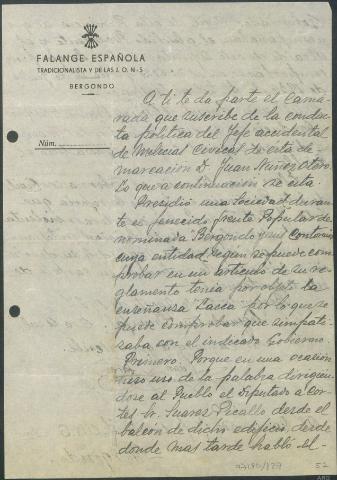 FALANGE ESPAÑOLA
TRADICIONALISTA Y DE LAS J. O. N-S
BERGONDO
Núm.
A ti te da parte el Cama-
rada que suscribe de la conduc-
ta política del Jefe accidental
de Milicias Civicas de esta de-
marcación D. Juan Núñez Otero.
Lo que a continuación se cita.
Presidió una sociedad duran-
te el fenecido frente Popular de-
nominada "Bergondo y sus Contornos
cuya entidad, segun se puede com-
probar en un articulo de su re-
glamento tenía por objeto la
enseñanza "Laica" por lo que se
puede comprobar que simpati-
zaba con el indicado Gobierno.
Primero. Porque en una ocasión
hizo uso de la palabra dirigien-
dose al Pueblo el Diputado a Cor-
tes Sr. Suarez Picallo desde el
balcón de dicho edificio, desde
donde mas tarde habló el-
52